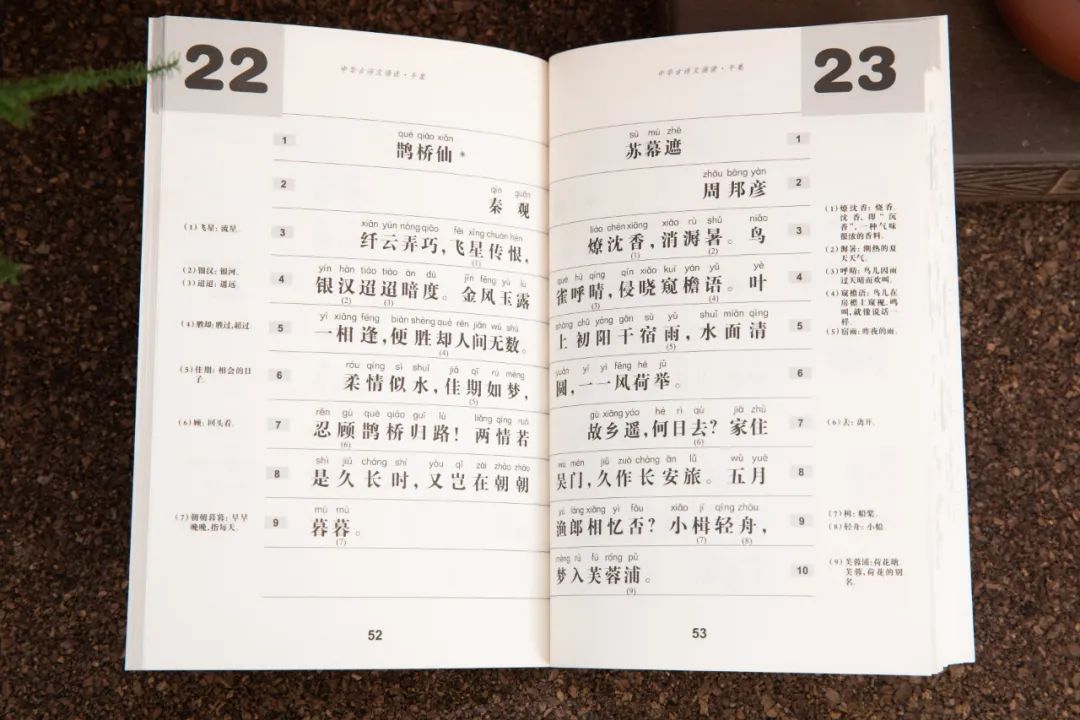 22
中华古诗文诵读·千集
1
què qiáo xiān
鹊桥仙*
2
qín guān
秦 观
3
xiān yún nòng qiǎo fēi xīng chuán hèn
纤云弄巧,飞星传恨,
(1)
4
yín hàn tiáo tiáo àn dù jīn fēng yù lù
银汉迢迢暗度。金风玉露
(2) (3)
5
yì xiāng féng biàn shèng què rén jiān wú shù
一相逢,便胜却人间无数。
(4)
6
róu qíng sì shuǐ jiā qī rú mèng
柔情似水,佳期如梦,
(5)
7
rěn gù què qiáo guī lù liǎng qíng ruò
忍顾鹊桥归路!两情若
(6)
8
shì jiǔ cháng shí yòu qǐ zài zhāo zhāo
是久长时,又岂在朝朝
9
mù mù
暮暮。
(7)
(1)飞星:流星.
(2)银汉:银河.
(3)迢迢:遥远.
(4)胜却:胜过,超过.
(5)佳期:相会的日
子.
(6)顾:回头看.
(7)朝朝暮暮:早早
晚晚,指每天.
52
23
中华古诗文诵读·千集
1
sū mù zhē
苏幕遮
2
zhōu bāng yàn
周邦彦
3
liáo chén xiāng xiāo rù shǔ niǎo
燎沈香,消溽暑。鸟
(1) (2)
4
què hū qíng qīn xiǎo kuī yán yǔ yè
雀呼晴,侵晓窥檐语。叶
(3) (4)
5
shàng chū yáng gān sù yǔ shuǐ miàn qīng
上初阳干宿雨,水面清
(5)
6
yuán yī yī fēng hé jǔ
圆,一一风荷举。
7
gù xiāng yáo hé rì qù jiā zhù
故乡遥,何日去?家住
(6)
8
wú mén jiǔ zuò cháng ān lǚ wǔ yuè
吴门,久作长安旅。五月
9
yú láng xiāng yì fǒu xiǎo jí qīng zhōu
渔郎相忆否?小楫轻舟,
(7) (8)
10
mèng rù fú róng pǔ
梦入芙蓉浦。
(9)
(1)燎沈香:烧香.
沈香,即“沉
香”,一种气味
很浓的香料.
(2)溽暑:潮热的夏
天天气.
(3)呼晴:鸟儿因雨
过天晴而欢叫.
(4)窥檐语:鸟儿在
房檐上窥视、鸣
叫,就像说话一
样.
(5)宿雨:昨夜的雨.
(6)去:离开.
(7)楫:船桨.
(8)轻舟:小船.
(9)芙蓉浦:荷花塘.
芙蓉,荷花的别
名.
53